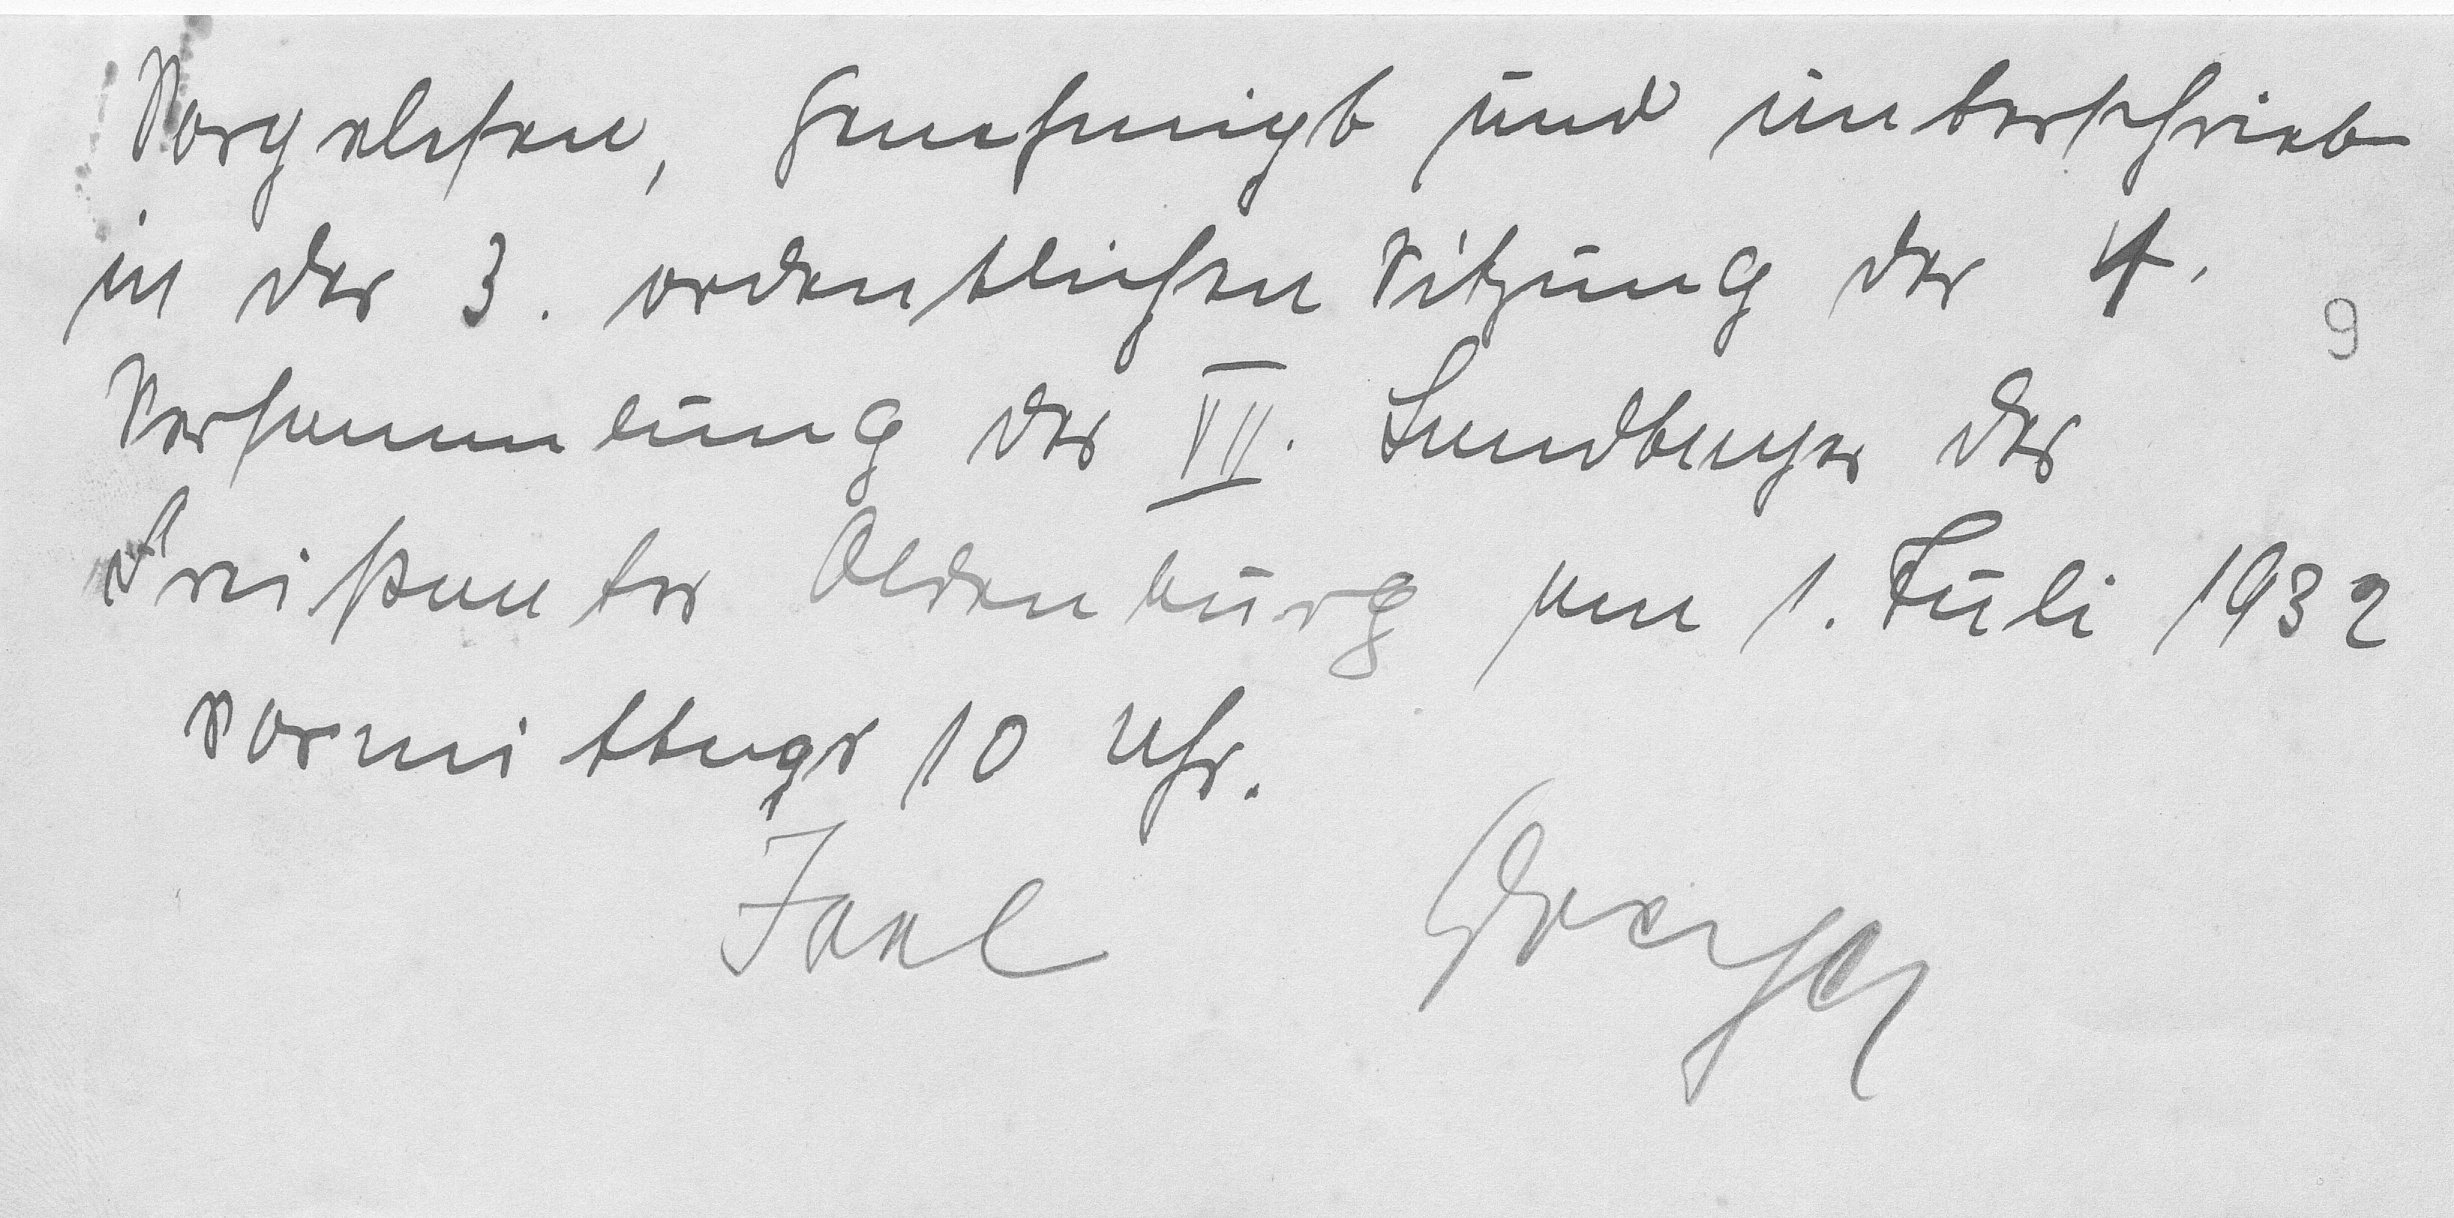 Vorgelesen, genehmigt und unterschrieb
in der 3. ordentlichen Sitzung der 4.
9
Versammlung des VII. Landtages des
Freistaates Oldenburg am 1. Juli 1932
vormittags 10 Uhr.
Joel